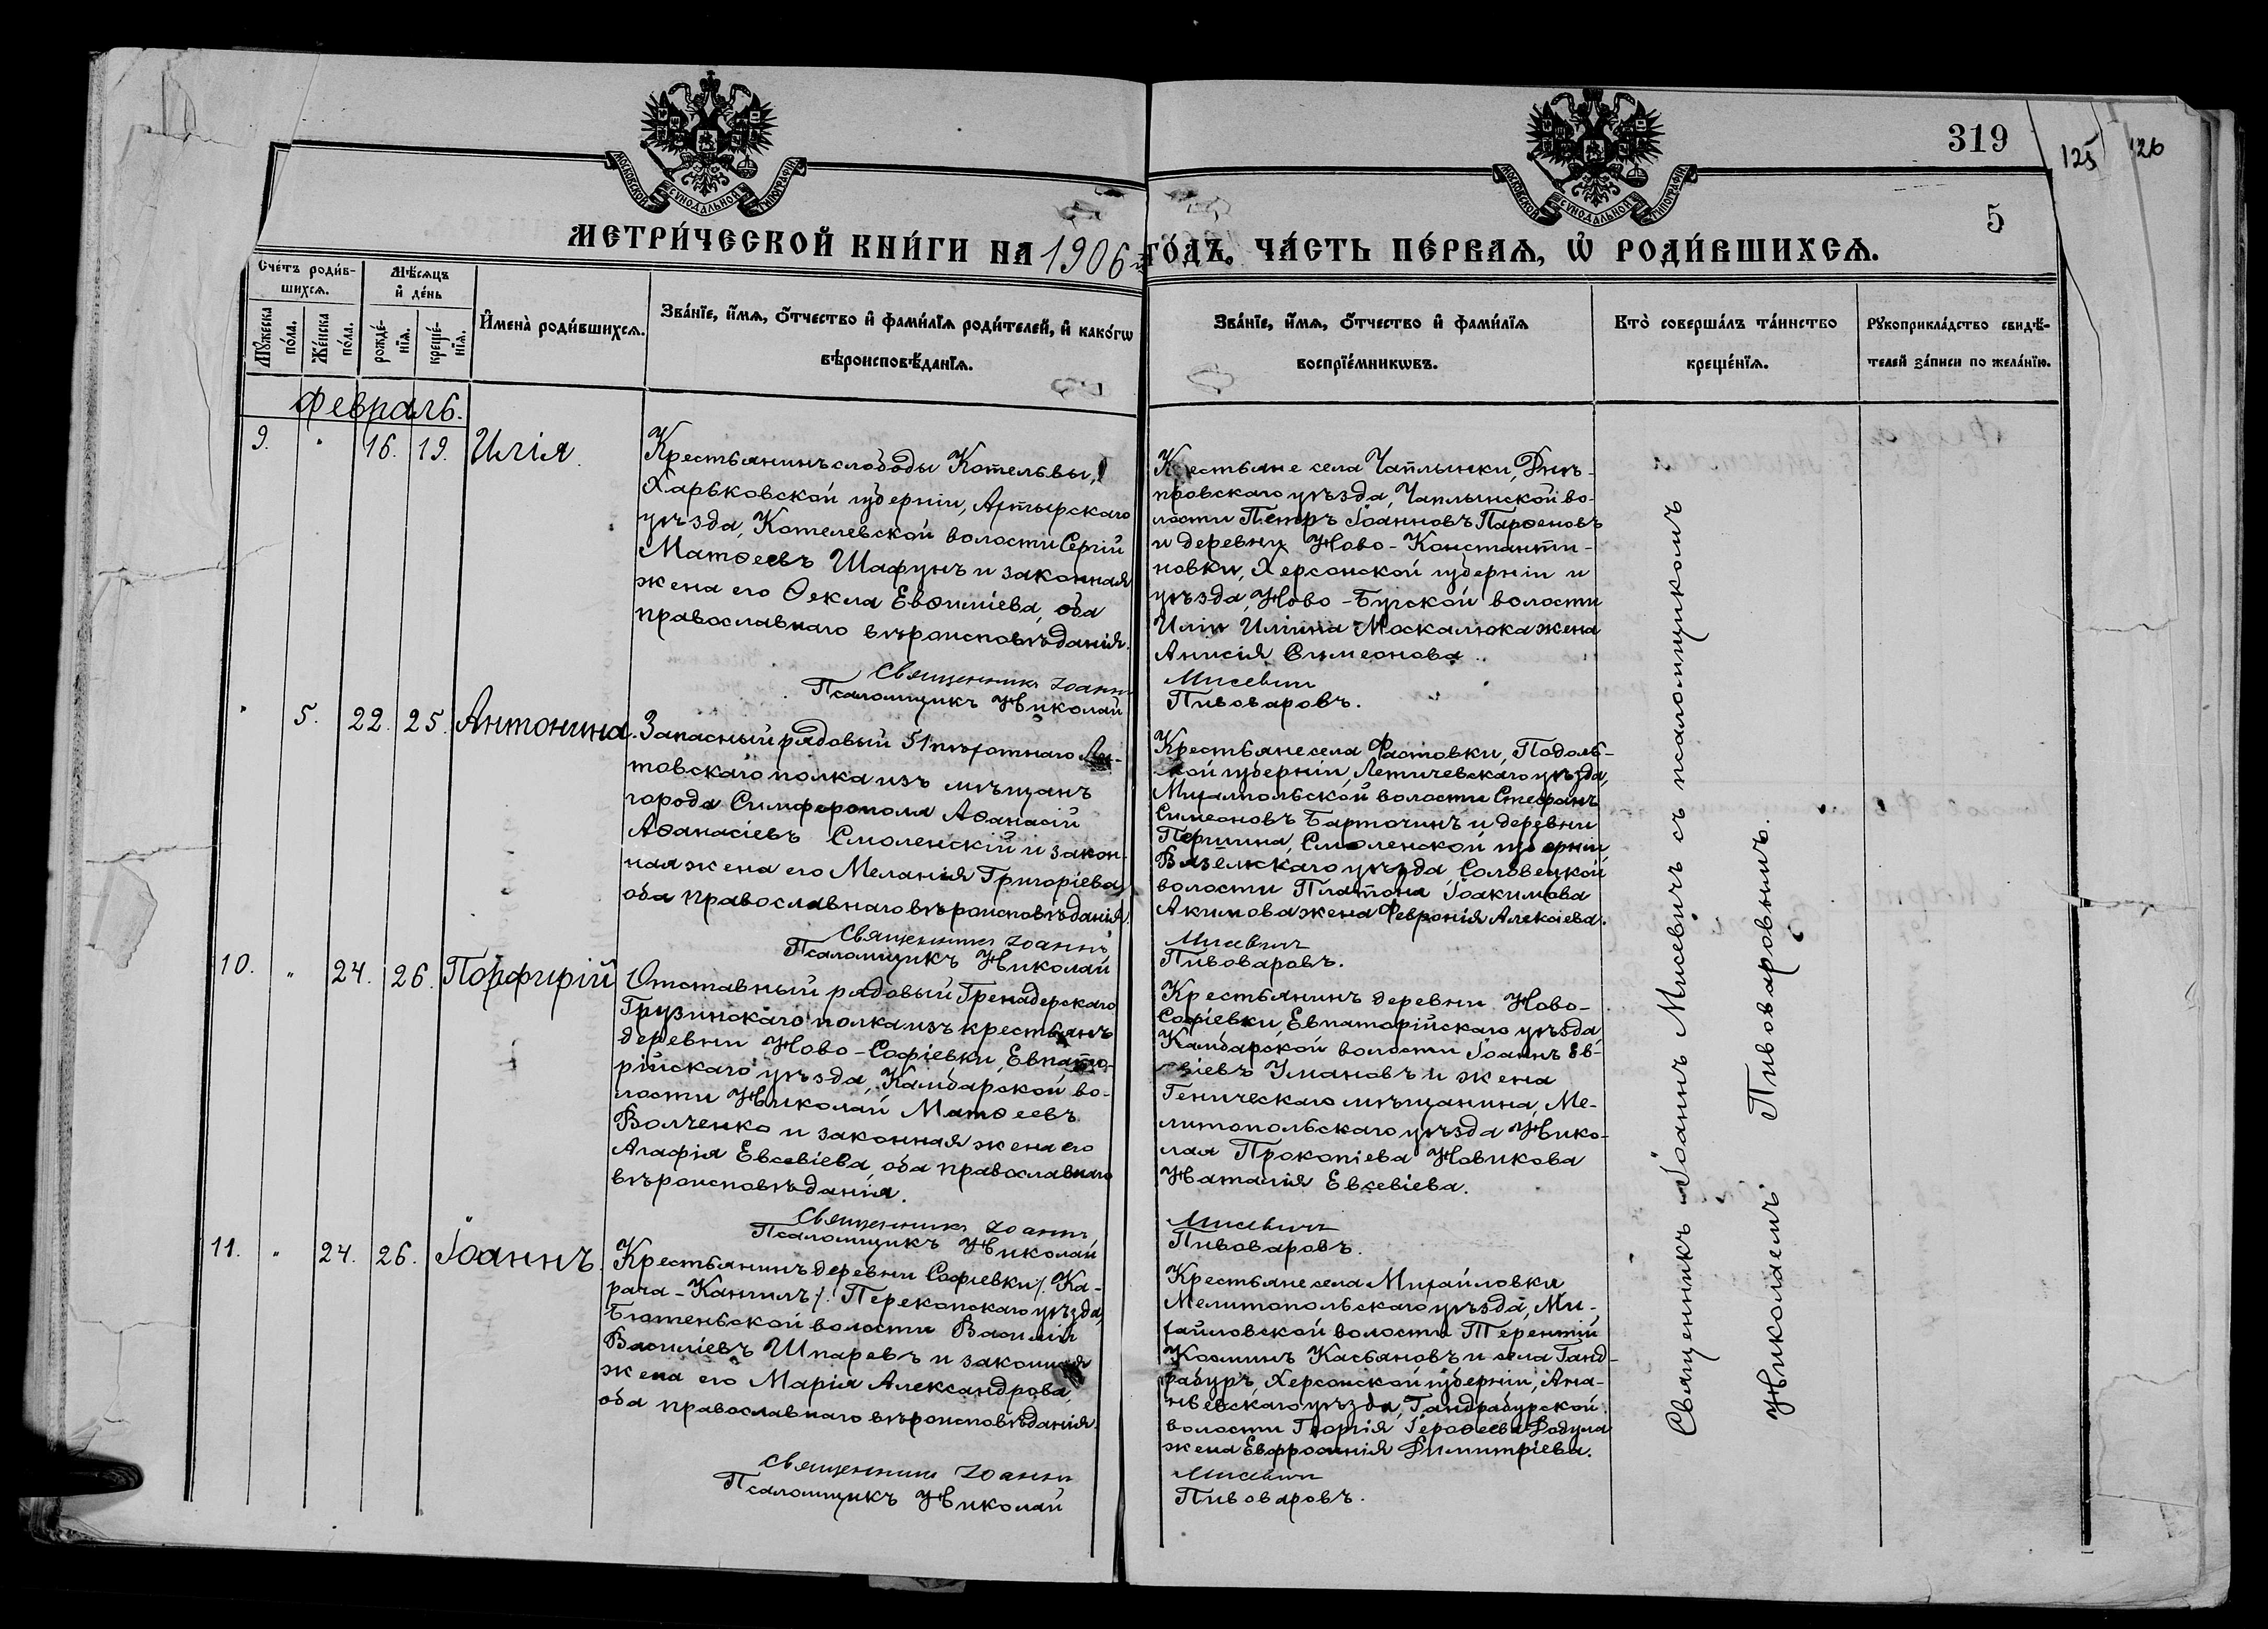 МОСКОВСКОЙ СѴНОДАЛЬНОЙ ТИПОГРАФІИ
МОСКОВСКОЙ СѴНОДАЛЬНОЙ ТИПОГРАФІИ
319
125
126
5
МЕТРИ́ЧЕСКОЙ КНИ́ГИ НА 1906-й ГО́ДЪ, ЧА́СТЬ ПЕ́РВАѦ, Ѡ҆ РОДИ́ВШИХСѦ.
Сче́тъ роди́в-
шихсѧ.
Мѣ́сѧцъ
и҆ де́нь
Мꙋ́жеска по́ла.
Же́нска по́ла.
рожде́-
нїѧ.
креще́-
нїѧ.
И҆мена̀ роди́вшихсѧ.
Зва́нїе, и҆́мѧ, ѻ҆́тчество и҆ фами́лїѧ роди́телей, и҆ како́гѡ
вѣроисповѣ́данїѧ.
Зва́нїе, и҆́мѧ, ѻ҆́тчество и҆ фами́лїѧ
воспрїе́мникѡвъ.
Кто̀ соверша́лъ та́инство
креще́нїѧ.
Рꙋкоприкла́дство свидѣ́-
телей за́писи по жела́нїю.
Февраль.
9. " 16. 19. Илія.
Крестьянинъ слободы Котельвы,
Харьковской губерніи, Ахтырскаго
уѣзда, Котелевской волости Сергій
Матѳеевъ Шафунъ и законная
жена его Ѳекла Евѳиміева, оба
православнаго вѣроисповѣданія.
Священникъ Іоаннъ
Псаломщикъ Николай
Крестьяне села Чаплынки, Днѣ-
провскаго уѣзда, Чаплынской во-
лости Петръ Іоанновъ Парѳеновъ
и деревни Ново-Константи-
новки, Херсонской губерніи и
уѣзда, Ново-Бугской волости
Иліи Иліина Москалюка жена
Анисія Симеонова.
Мисевичъ
Пивоваровъ.
" 5. 22. 25. Антонина.
Запасный рядовый 51 пѣхотнаго Ли-
товскаго полка изъ мѣщанъ
города Симферополя Аѳанасій
Аѳанасіевъ Смоленскій и закон-
ная жена его Меланія Григоріева,
оба православнаго вѣроисповѣданія.
Священникъ Іоаннъ
Псаломщикъ Николай
Крестьяне села Фастовки, Подоль-
ской губерніи, Летичевскаго уѣзда,
Михалпольской волости Стефанъ
Симеоновъ Барточинъ и деревни
Смоленской губерніи
уѣзда, Соловецкой
волости Платона Іоакимова
Акимова жена Февронія Алексіева.
Мисевичъ
Пивоваровъ.
10. " 24. 26. Порфирій
Отставный рядовый Гренадерскаго
Грузинскаго полка изъ крестьянъ
деревни Ново-Софіевки, Евпато-
рійскаго уѣзда, Камбарской во-
лости Николай Матѳеевъ
Волченко и законная жена его
Агафія Евсевіева, оба православнаго
вѣроисповѣданія.
Священникъ Іоаннъ
Псаломщикъ Николай
Крестьянинъ деревни Ново-
Софіевки, Евпаторійскаго уѣзда
Камбарской волости Іоаннъ Ев-
Умановъ и жена
Геническаго мѣщанина, Ме-
литопольскаго уѣзда Нико-
лая Прокопіева Новикова
Наталія Евсевіева.
Мисевичъ
Пивоваровъ.
11. " 24. 26. Іоаннъ.
Крестьянинъ деревни Софіевки /. Ка-
рача-Кангилъ /. Перекопскаго уѣзда,
Бютеньской волости Василій
Василіевъ Шпаревъ и законная
жена его Марія Александрова,
оба православнаго вѣроисповѣданія.
Священникъ Іоаннъ
Псаломщикъ Николай
Крестьяне села Михайловки
Мелитопольскаго уѣзда, Ми-
хайловской волости Терентій
Козминъ Касьяновъ и села Ганд-
рабуръ, Херсонской губерніи, Ана-
ньевскаго уѣзда, Гандрабурской
волости Георгія Героѳеева Додула
жена Евфросинія Димитріева.
Мисевичъ
Пивоваровъ.
Священникъ Іоаннъ Мисевичъ съ псаломщикомъ
Николаемъ Пивоваровымъ.